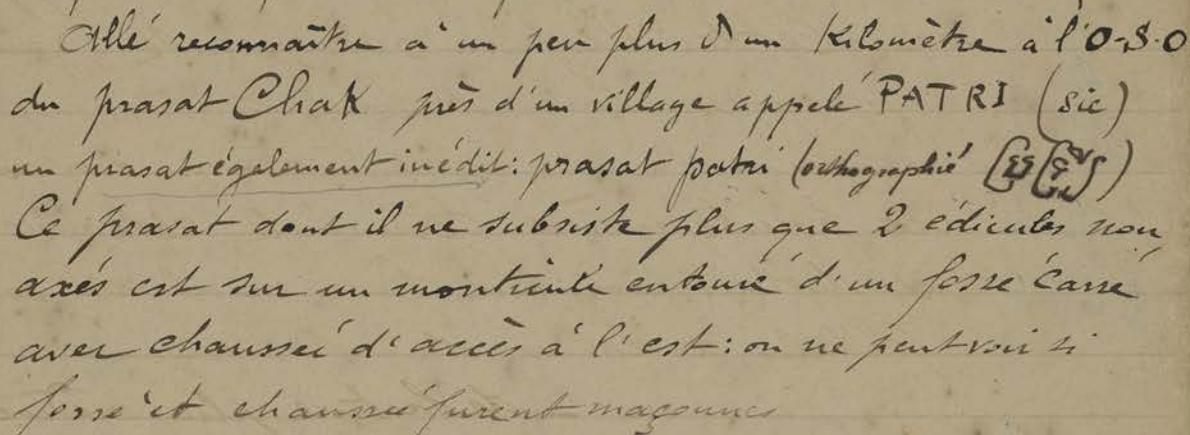 Allé reconnaître à un peu plus d'un Kilomètre à l'O-S-O
du prasat Chak près d'un village appelé PATRI (sic)
un prasat également inédit: prasat patri (orthographié )
Ce prasat dont il ne subsiste plus que 2 édicules non
axés est sur un monticule entouré d'un fossé carré
avec chaussée d'accès à l'est: on ne peut voir si
fossé et chaussée furent maçonnés